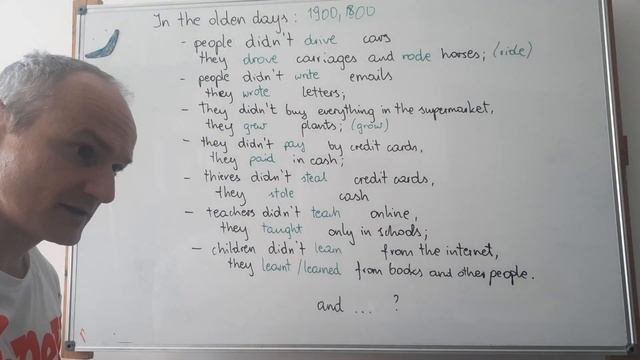 In the olden days: 1900, 1800
- people didn't drive cars
they drove carriages and rode horses; (ride)
- people didn't write emails
they wrote letters;
- They didn't buy everything in the supermarket,
they grew plants; (grow)
- they didn't pay by credit cards,
they paid in cash;
- thieves didn't steal credit cards,
they stole cash
- teachers didn't teach online,
they taught only in schools;
- children didn't learn from the internet,
they learnt/learned from books and other people.
and ... ?